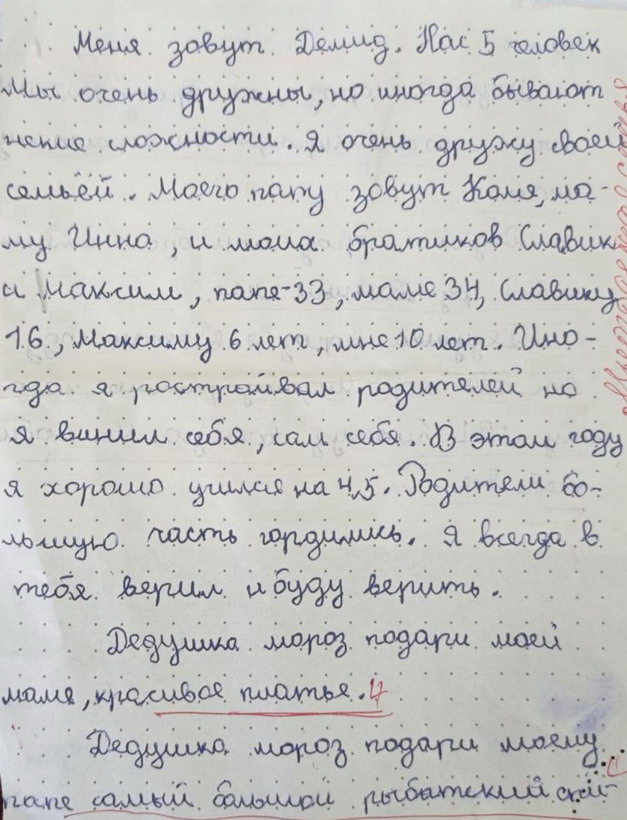 Меня зовут Демид. Нас 5 человек
Мы очень дружны, но иногда бывают
некие сложности. Я очень дружу своей
семьёй. Моего папу зовут Коля, ма-
му Инна, и моих братиков Славик
и Максим, папе-33, маме 34, Славику
16, Максиму 6 лет, мне 10 лет. Ино-
гда я ростраивал родителей но
я винил себя, сам себя. В этом году
я хорошо учился на 4,5. Родители бо-
льшую часть гордились. Я всегда в
тебя верил и буду верить.
Дедушка мороз подари моей
маме, красивое платье.
Дедушка мороз подари моему
папе самый большой рыбатский